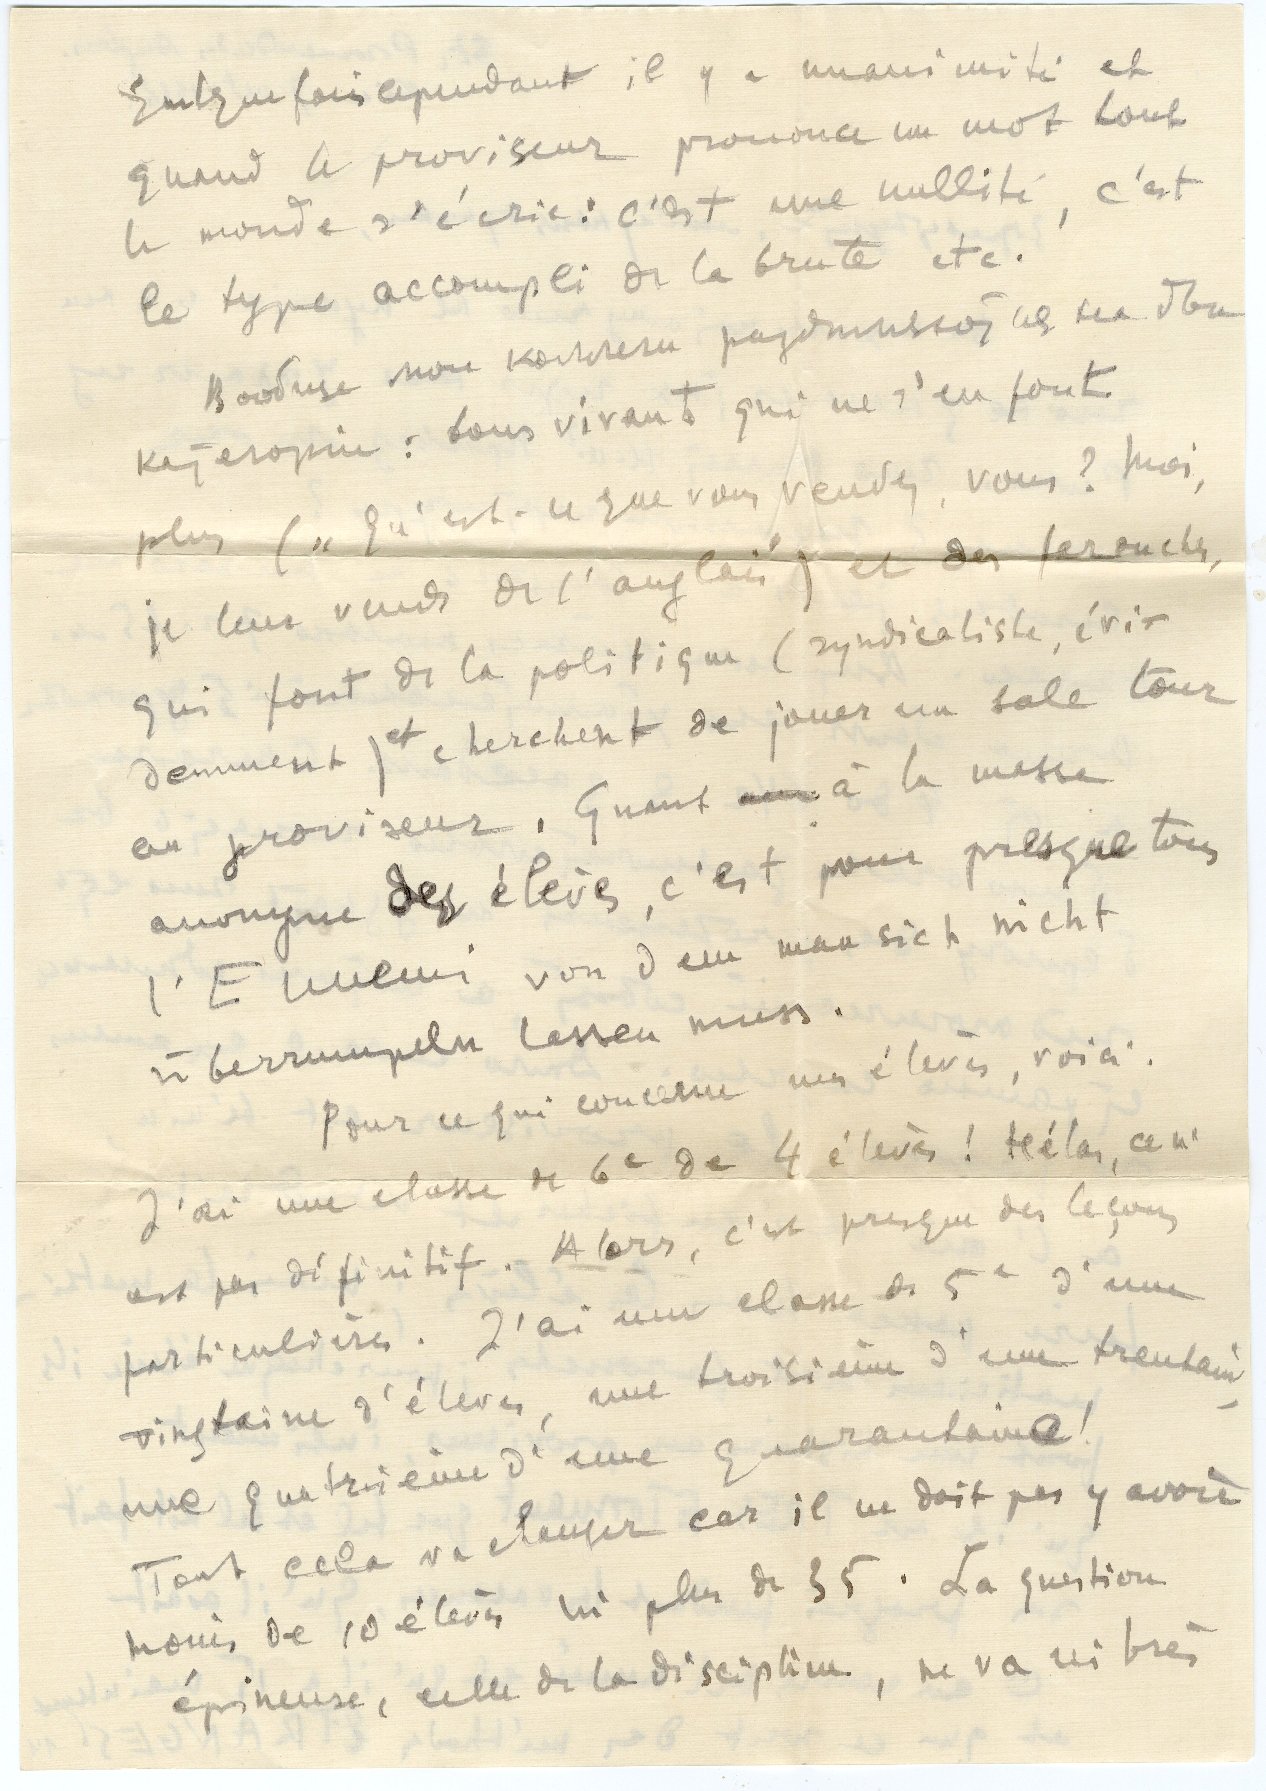 Quelquefois cependant il y a unanimité et
quand le proviseur prononce un mot tout
le monde s'écrie: c'est une nullité, c'est
le type accompli de la brute etc.
Вообще мои коллеги раздѣляются на двѣ
категории: bons vivants qui ne s'en font
plus („Qu'est-ce que vous vendez, vous? Moi,
je leur vends de l'anglais") et des farouches,
qui font de la politique (syndicaliste, évi-
demment) et cherchent de jouer un sale tour
au proviseur. Quant à la masse
anonyme des élevès, c'est pour presque tous
l'Ennemi von dem man sich nicht
überrumpeln lassen muss.
Pour ce qui concerne mes élevès, voici.
J'ai une classe de 6e de 4 élevès! Hélas, ce n'
est pas définitif. Alors, c'est presque des leçons
particulières. J'ai une classe de 5e d'une
vingtaine d'éleves, une troisième d'une trentaine,
une quatrième d'une quarantaine!
Tout cela va changer car il ne doit pas y avoir
moins de 10 élevès ni plus de 35. La question
épineuse, celle de la discipline, ne va ni très